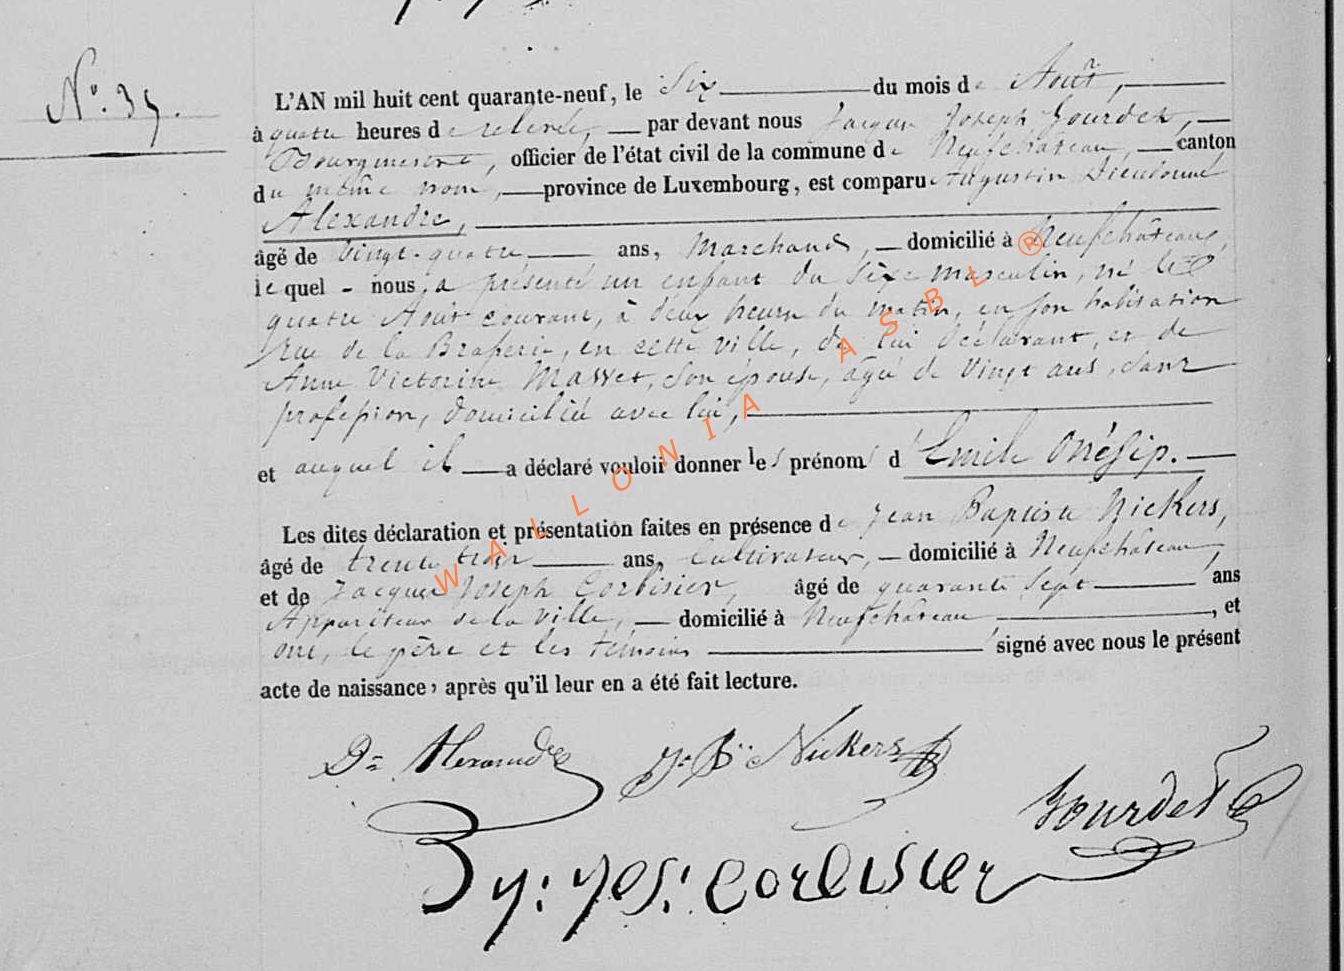 N°. 35.
L'AN mil huit cent quarante-neuf, le Six du mois de Août,
à quatre heures de relevée, par devant nous Jacques Joseph Gourdet,
Bourgmestre, officier de l'état civil de la commune de Neufchâteau, canton
du même nom, province de Luxembourg, est comparu Augustin Dieudonné
Alexandre,
âgé de vingt-quatre ans, Marchand, domicilié à Neufchâteau,
lequel nous a présenté un enfant du sexe masculin, né le
quatre Août courant, à deux heures du matin, en son habitation
rue de la Brasserie, en cette ville, de lui déclarant, et de
Anne Victorine Masset, son épouse, âgée de Vingt ans, sans
profession, domiciliée avec lui,
et auquel il a déclaré vouloir donner les prénoms d'Emile Onésip.
Les dites déclaration et présentation faites en présence de Jean Baptiste Nickers,
âgé de trente trois ans, Cultivateur, domicilié à Neufchâteau,
et de Jacques Joseph Corbisier, âgé de quarante sept ans
Appariteur de la ville, domicilié à Neufchâteau, et
ont, le père et les témoins signé avec nous le présent
acte de naissance, après qu'il leur en a été fait lecture.
Dné Alexandre J. Bte Nickers
Gourdet
Corbisier
WALLONIA ASBL ®